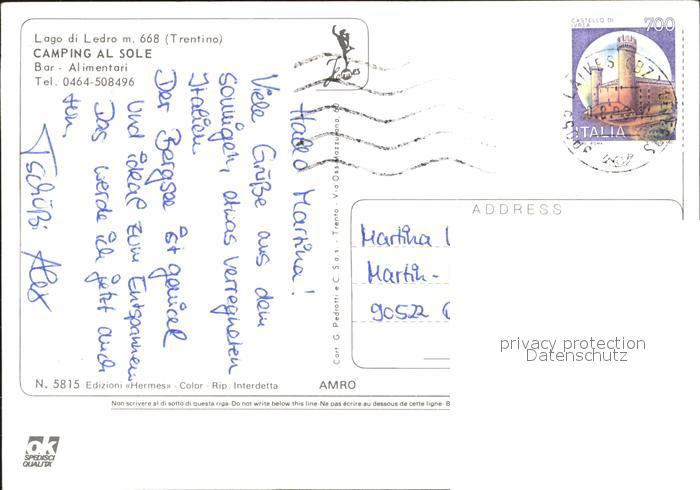 Lago di Ledro m. 668 (Trentino)
CAMPING AL SOLE
Bar - Alimentari
Tel. 0464-508496
Hallo Martina!
Viele Grüße aus dem
sonnigen, etwas verregneten
Italien
Der Bergsee ist genial
und ideal zum Entspannen
Das werde ich jetzt auch
tun,
Tschüßi Alex
CASTELLO DI
IVREA
700
ITALIA
ROMA
ADDRESS
Martina
Martin-
90522
privacy protection
Datenschutz
Cart. G. Pedrotti e C. S.a.s. - Trento - Via
N. 5815 Edizioni «Hermes» - Color - Rip. Interdetta
AMRO
Non scrivere al di sotto di questa riga-Do not write below this line-Ne pas écrire au dessous de cette ligne-
ok
SPEDISCI
QUALITÀ